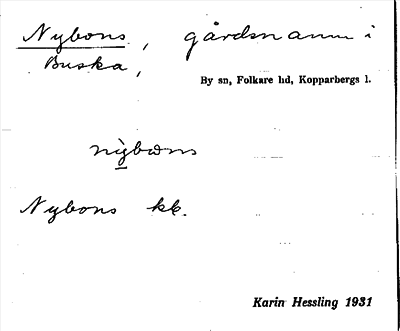 Nybons, gårdsnamn i
Buska,
By sn, Folkare hd, Kopparbergs l.
nỳbωns
Nybons kk.
Karin Hessling 1931